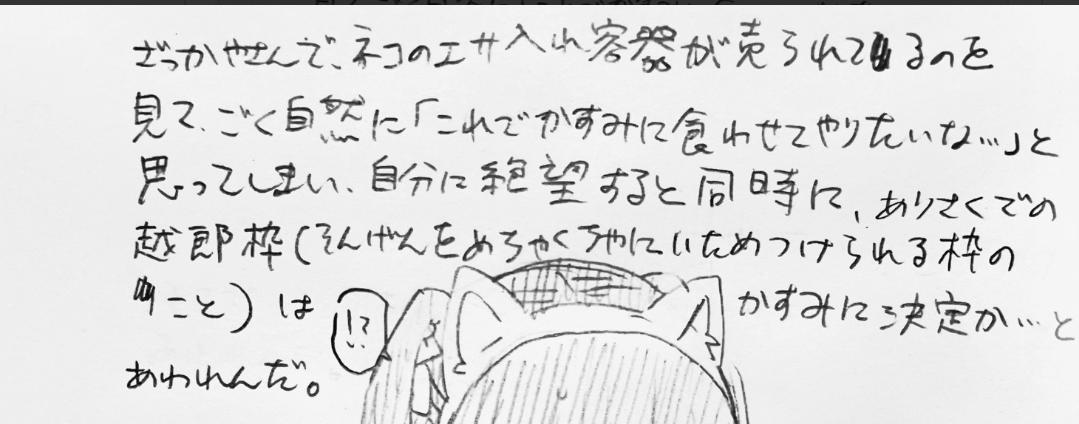 ざっかやさんで、ネコのエサ入れ容器が売られてるのを
見て、ごく自然に「これでかすみに食わせてやりたいな…」と
思ってしまい、自分に絶望すると同時に、ありさくでの
越郎枠(そんげんをめちゃくちゃにいためつけられる枠の
こと)は !? かすみに決定か…と
あわれんだ。